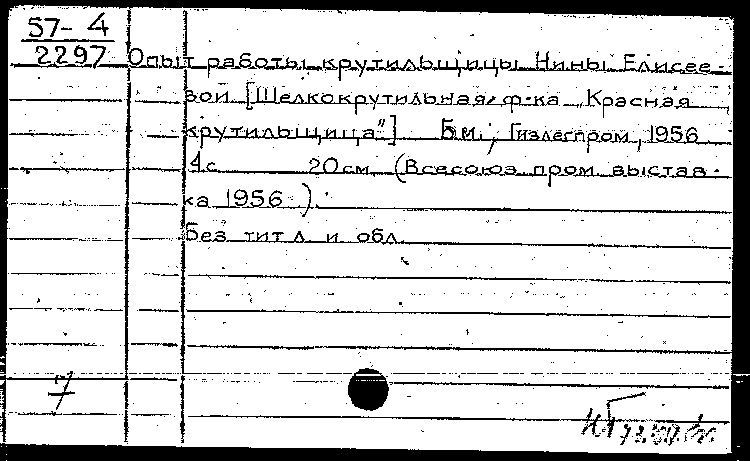 57-4
2297 Опыт работы крутильщицы Нины Елисее-
вой [Шелкокрутильная ф-ка „Красная
крутильщица"] Б.м., Гизлегпром, 1956
4с. 20см. (Всесоюз. пром. выстав-
ка 1956).
Без тит. л. и обл.
7